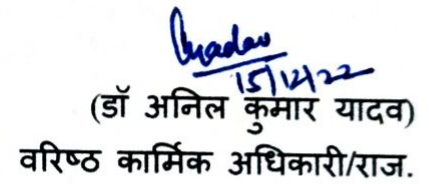 Yadav
15/12/22
(डॉ अनिल कुमार यादव)
वरिष्ठ कार्मिक अधिकारी/राज.